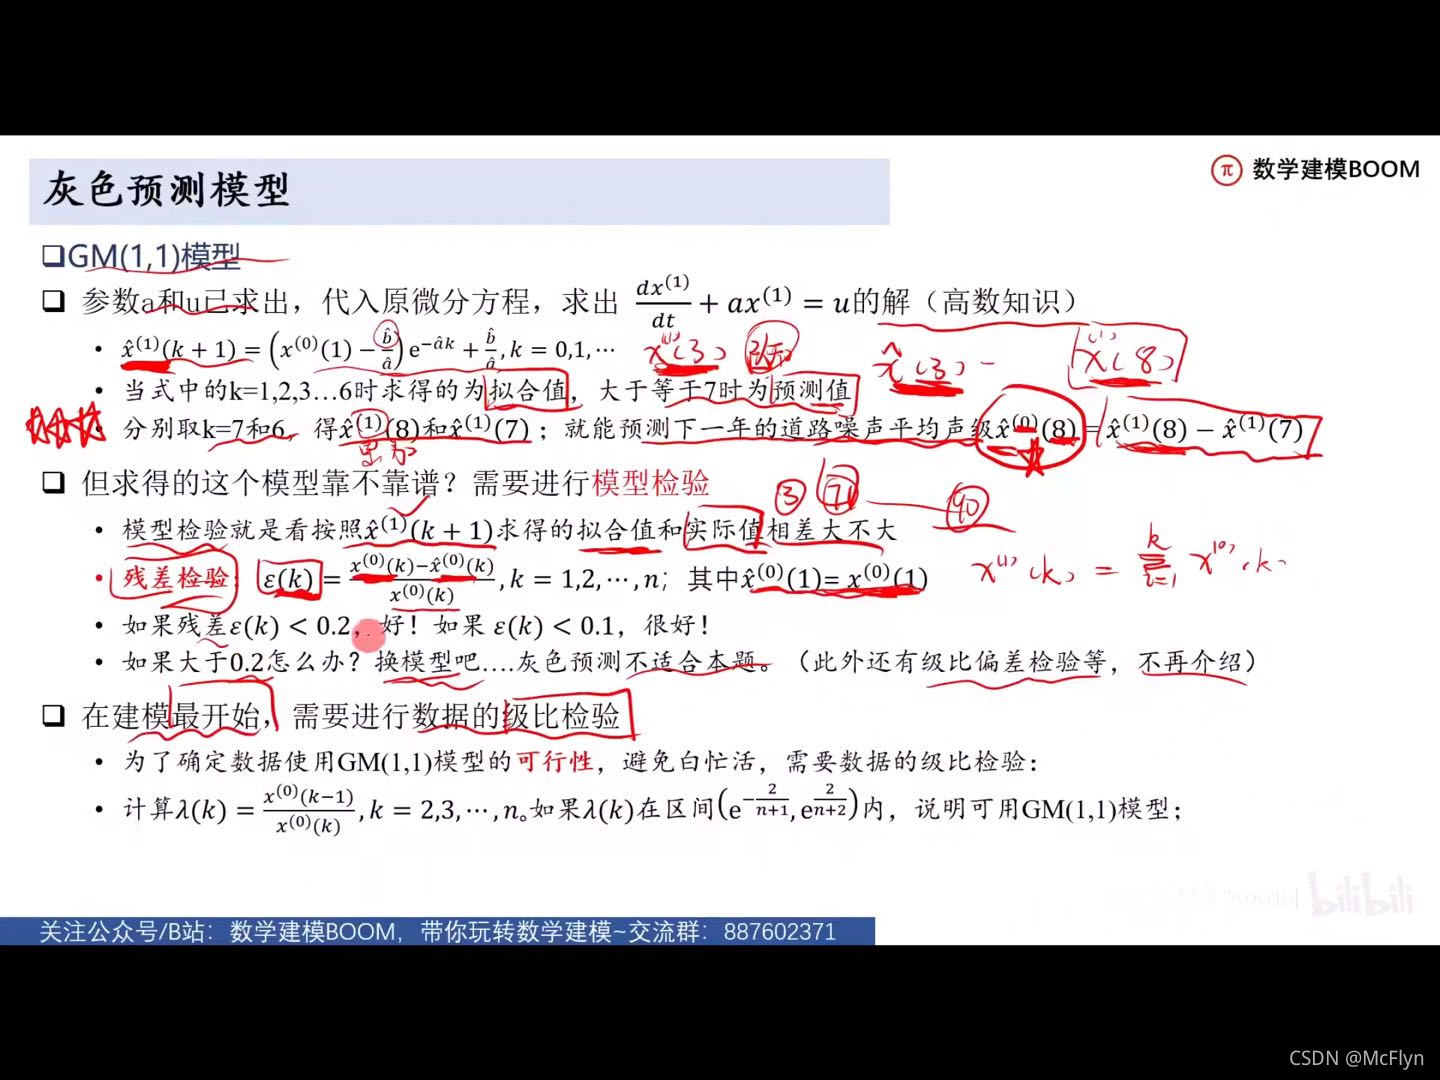 灰色预测模型
数学建模BOOM
❑GM(1,1)模型
❑ 参数a和u已求出，代入原微分方程，求出 dx⁽¹⁾/dt + ax⁽¹⁾ = u的解（高数知识）
• x̂⁽¹⁾(k + 1) = (x⁽⁰⁾(1) − b̂/â) e^(−âk) + b̂/â, k = 0,1,⋯
x⁽¹⁾(3)
x̂(3) −
x⁽¹⁾(8)
• 当式中的k=1,2,3…6时求得的为拟合值，大于等于7时为预测值
• 分别取k=7和6，得x̂⁽¹⁾(8)和x̂⁽¹⁾(7)；就能预测下一年的道路噪声平均声级x̂⁽⁰⁾(8) = x̂⁽¹⁾(8) − x̂⁽¹⁾(7)
累加
❑ 但求得的这个模型靠不靠谱？需要进行模型检验
3 71 90
• 模型检验就是看按照x̂⁽¹⁾(k + 1)求得的拟合值和实际值相差大不大
• 残差检验：ε(k) = (x⁽⁰⁾(k)−x̂⁽⁰⁾(k))/x⁽⁰⁾(k), k = 1,2,⋯,n；其中x̂⁽⁰⁾(1)= x⁽⁰⁾(1)
x⁽¹⁾(k) = Σ_{i=1}^{k} x⁽⁰⁾(k)
• 如果残差ε(k) < 0.2，好！如果 ε(k) < 0.1，很好！
• 如果大于0.2怎么办？换模型吧….灰色预测不适合本题。（此外还有级比偏差检验等，不再介绍）
❑ 在建模最开始，需要进行数据的级比检验
• 为了确定数据使用GM(1,1)模型的可行性，避免白忙活，需要数据的级比检验：
• 计算λ(k) = x⁽⁰⁾(k−1)/x⁽⁰⁾(k), k = 2,3,⋯,n。如果λ(k)在区间(e^(−2/(n+1)), e^(2/(n+2)))内，说明可用GM(1,1)模型；
bilibili
关注公众号/B站：数学建模BOOM，带你玩转数学建模~交流群：887602371
CSDN @McFlyn